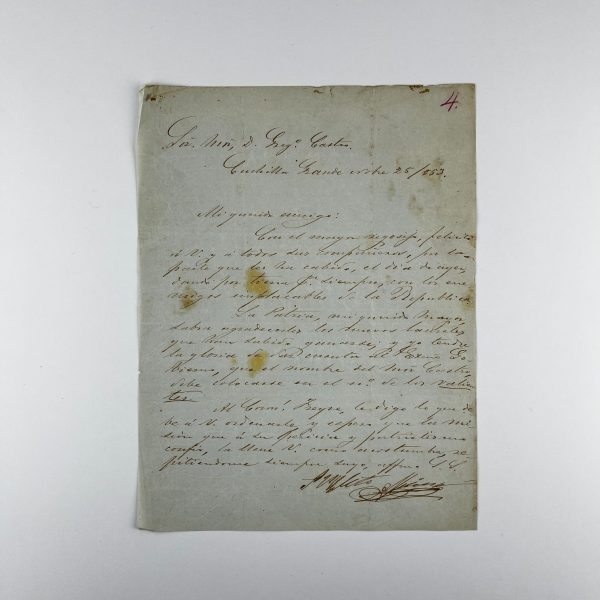 4.
Sõr. D. Greg.º Castro.
Cuchilla Grande 25/853.
Mi querido amigo:
Con el mayor regocijo, felicito
á V. y á todos sus compañeros, por la
parte que les ha cabido, el dia de ayer,
dando por tierra p.ª siempre, con los ene
migos de la Republica.
La Patria, mi querido Mayor
sabra agradecerles los nuevos laureles
que han sabido ganarse; y yo tendré
la gloria de dar cuenta al Exmo Go-
bierno, que el nombre del Castro,
debe colocarse en el de los valien
tes.
Al Reyes, le digo lo que de
be á V. ordenarle y espero que la mi
sion que á su pericia y patriotismo
confio, la llene V. como acostumbra, re
pitiendome siempre suyo, affmo